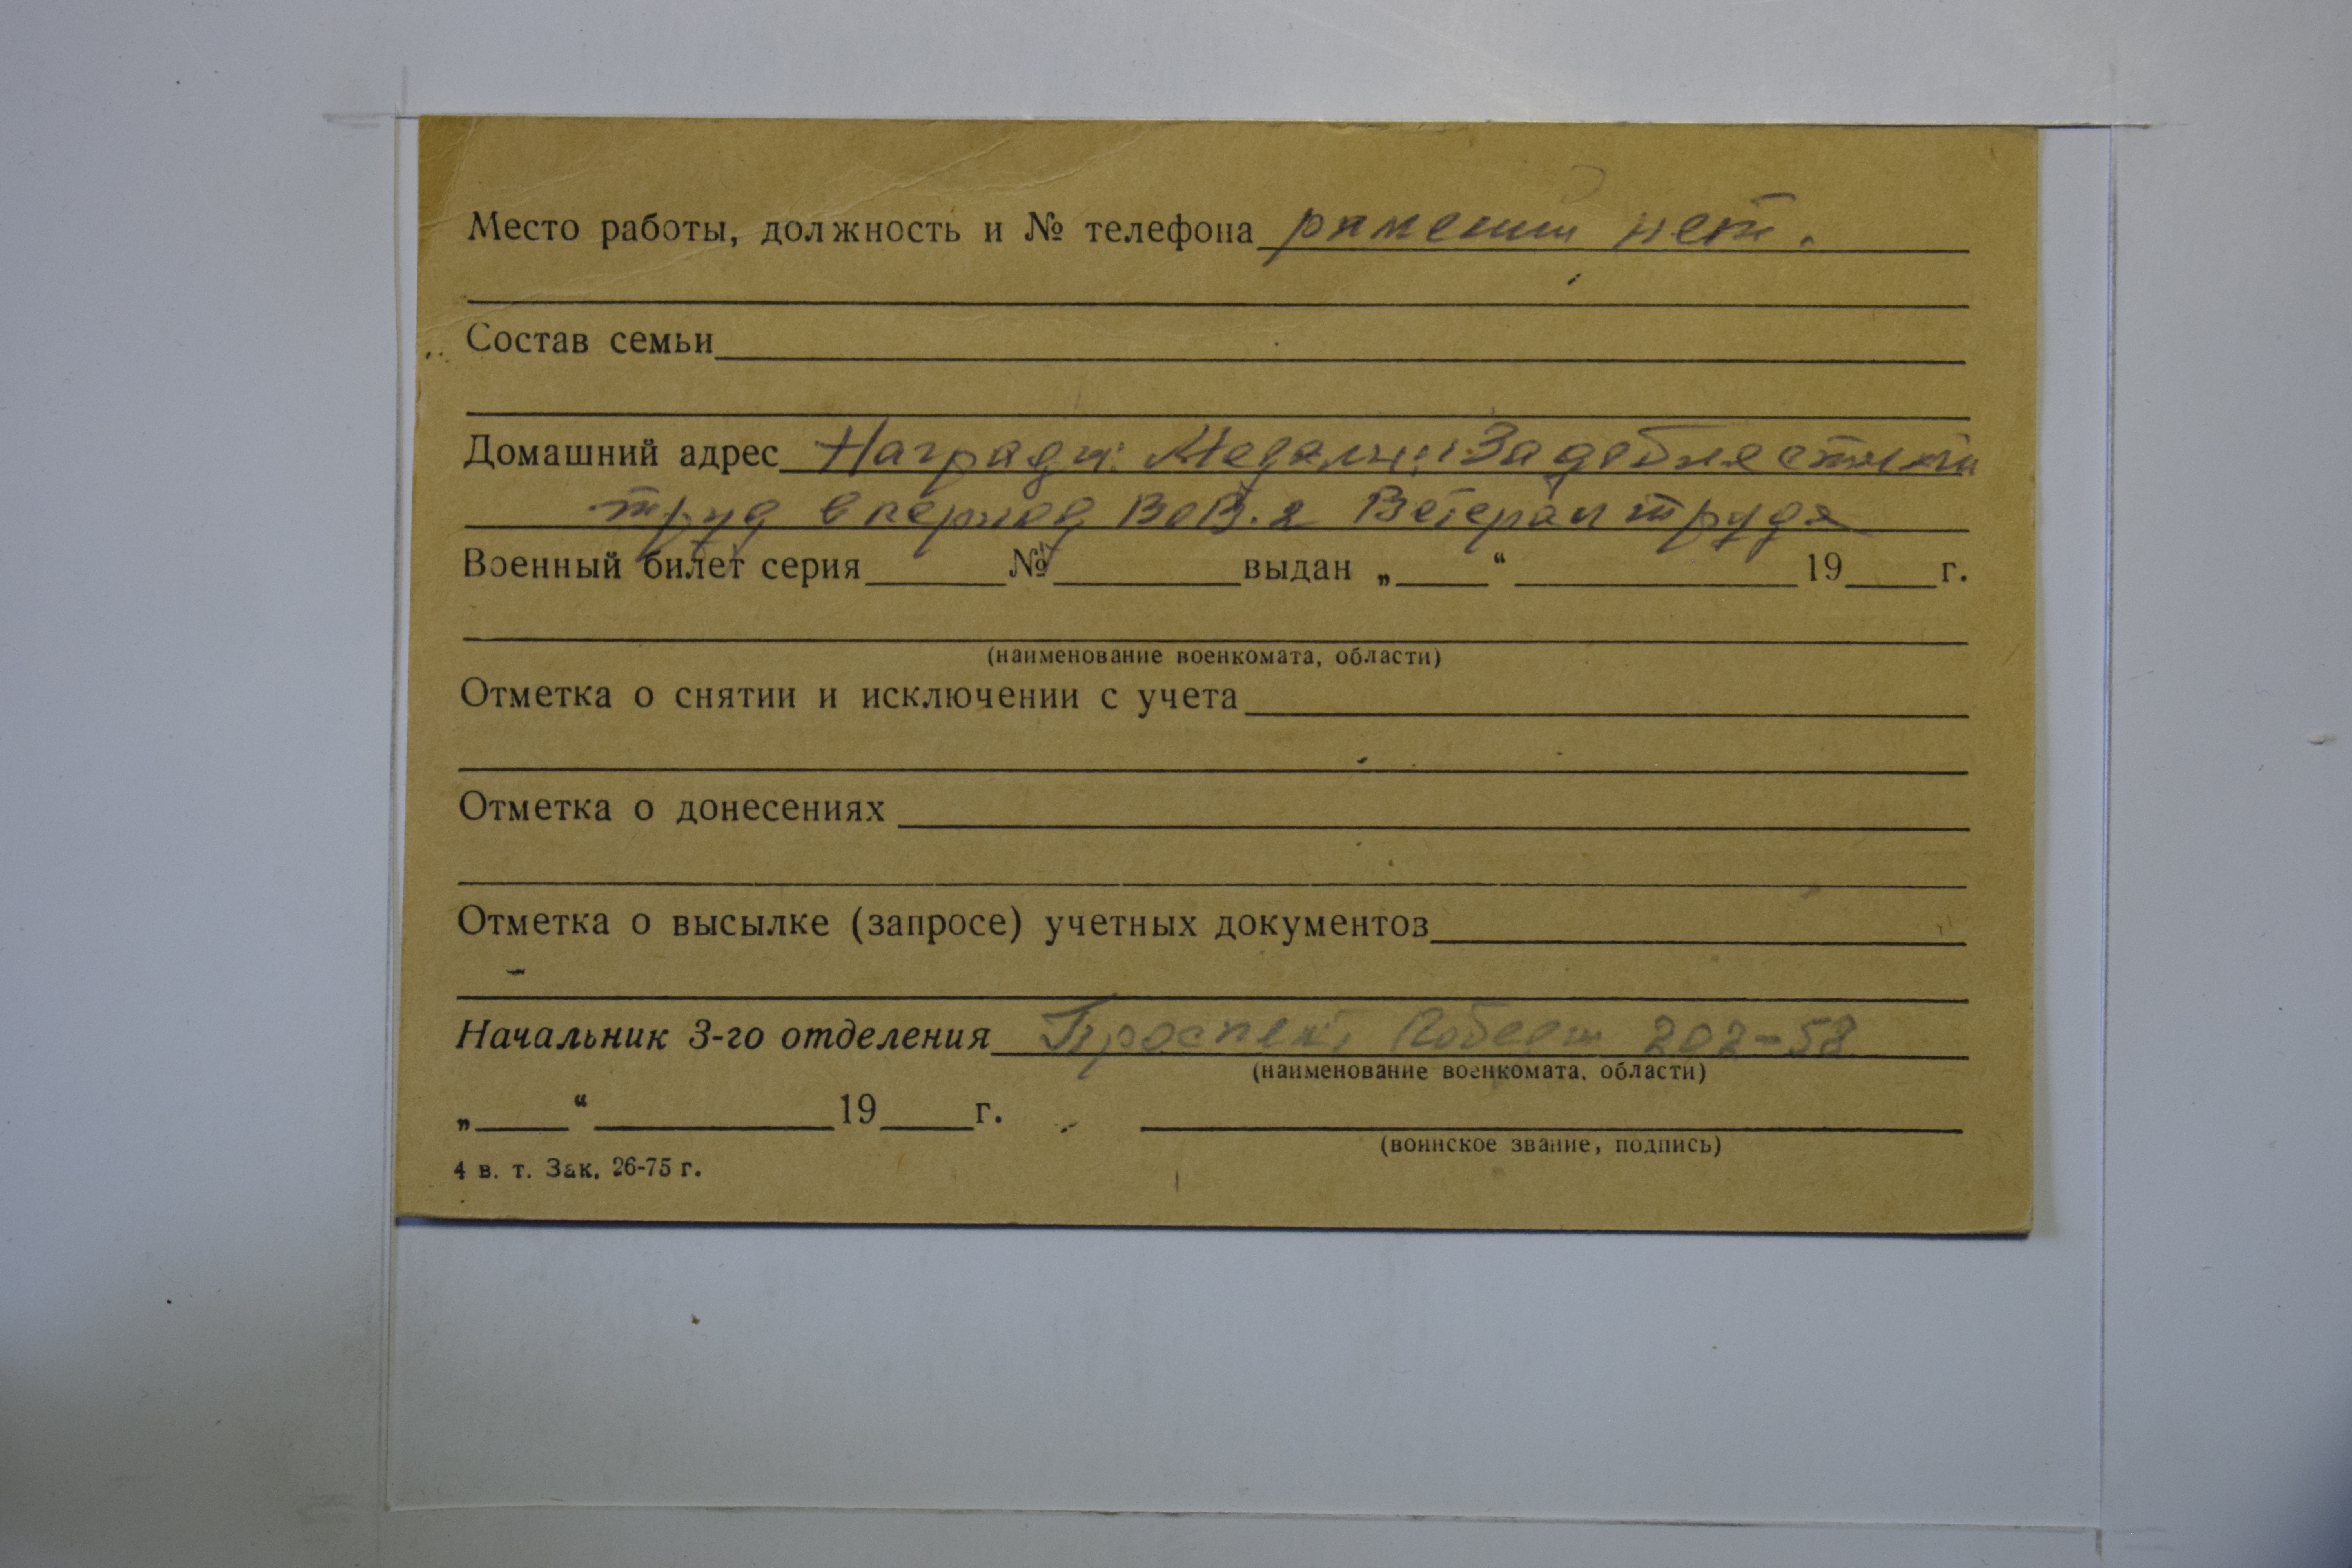 Место работы, должность и № телефона ранений нет.
Состав семьи
Домашний адрес Награды: Медали: За доблестный
труд в период ВОВ. и Ветеран труда
Военный билет серия № выдан „ “ 19 г.
(наименование военкомата, области)
Отметка о снятии и исключении с учета
Отметка о донесениях
Отметка о высылке (запросе) учетных документов
Начальник 3-го отделения Проспект Победы 202-58
(наименование военкомата, области)
„ “ 19 г.
(воинское звание, подпись)
4 в. т. Зак. 26-75 г.